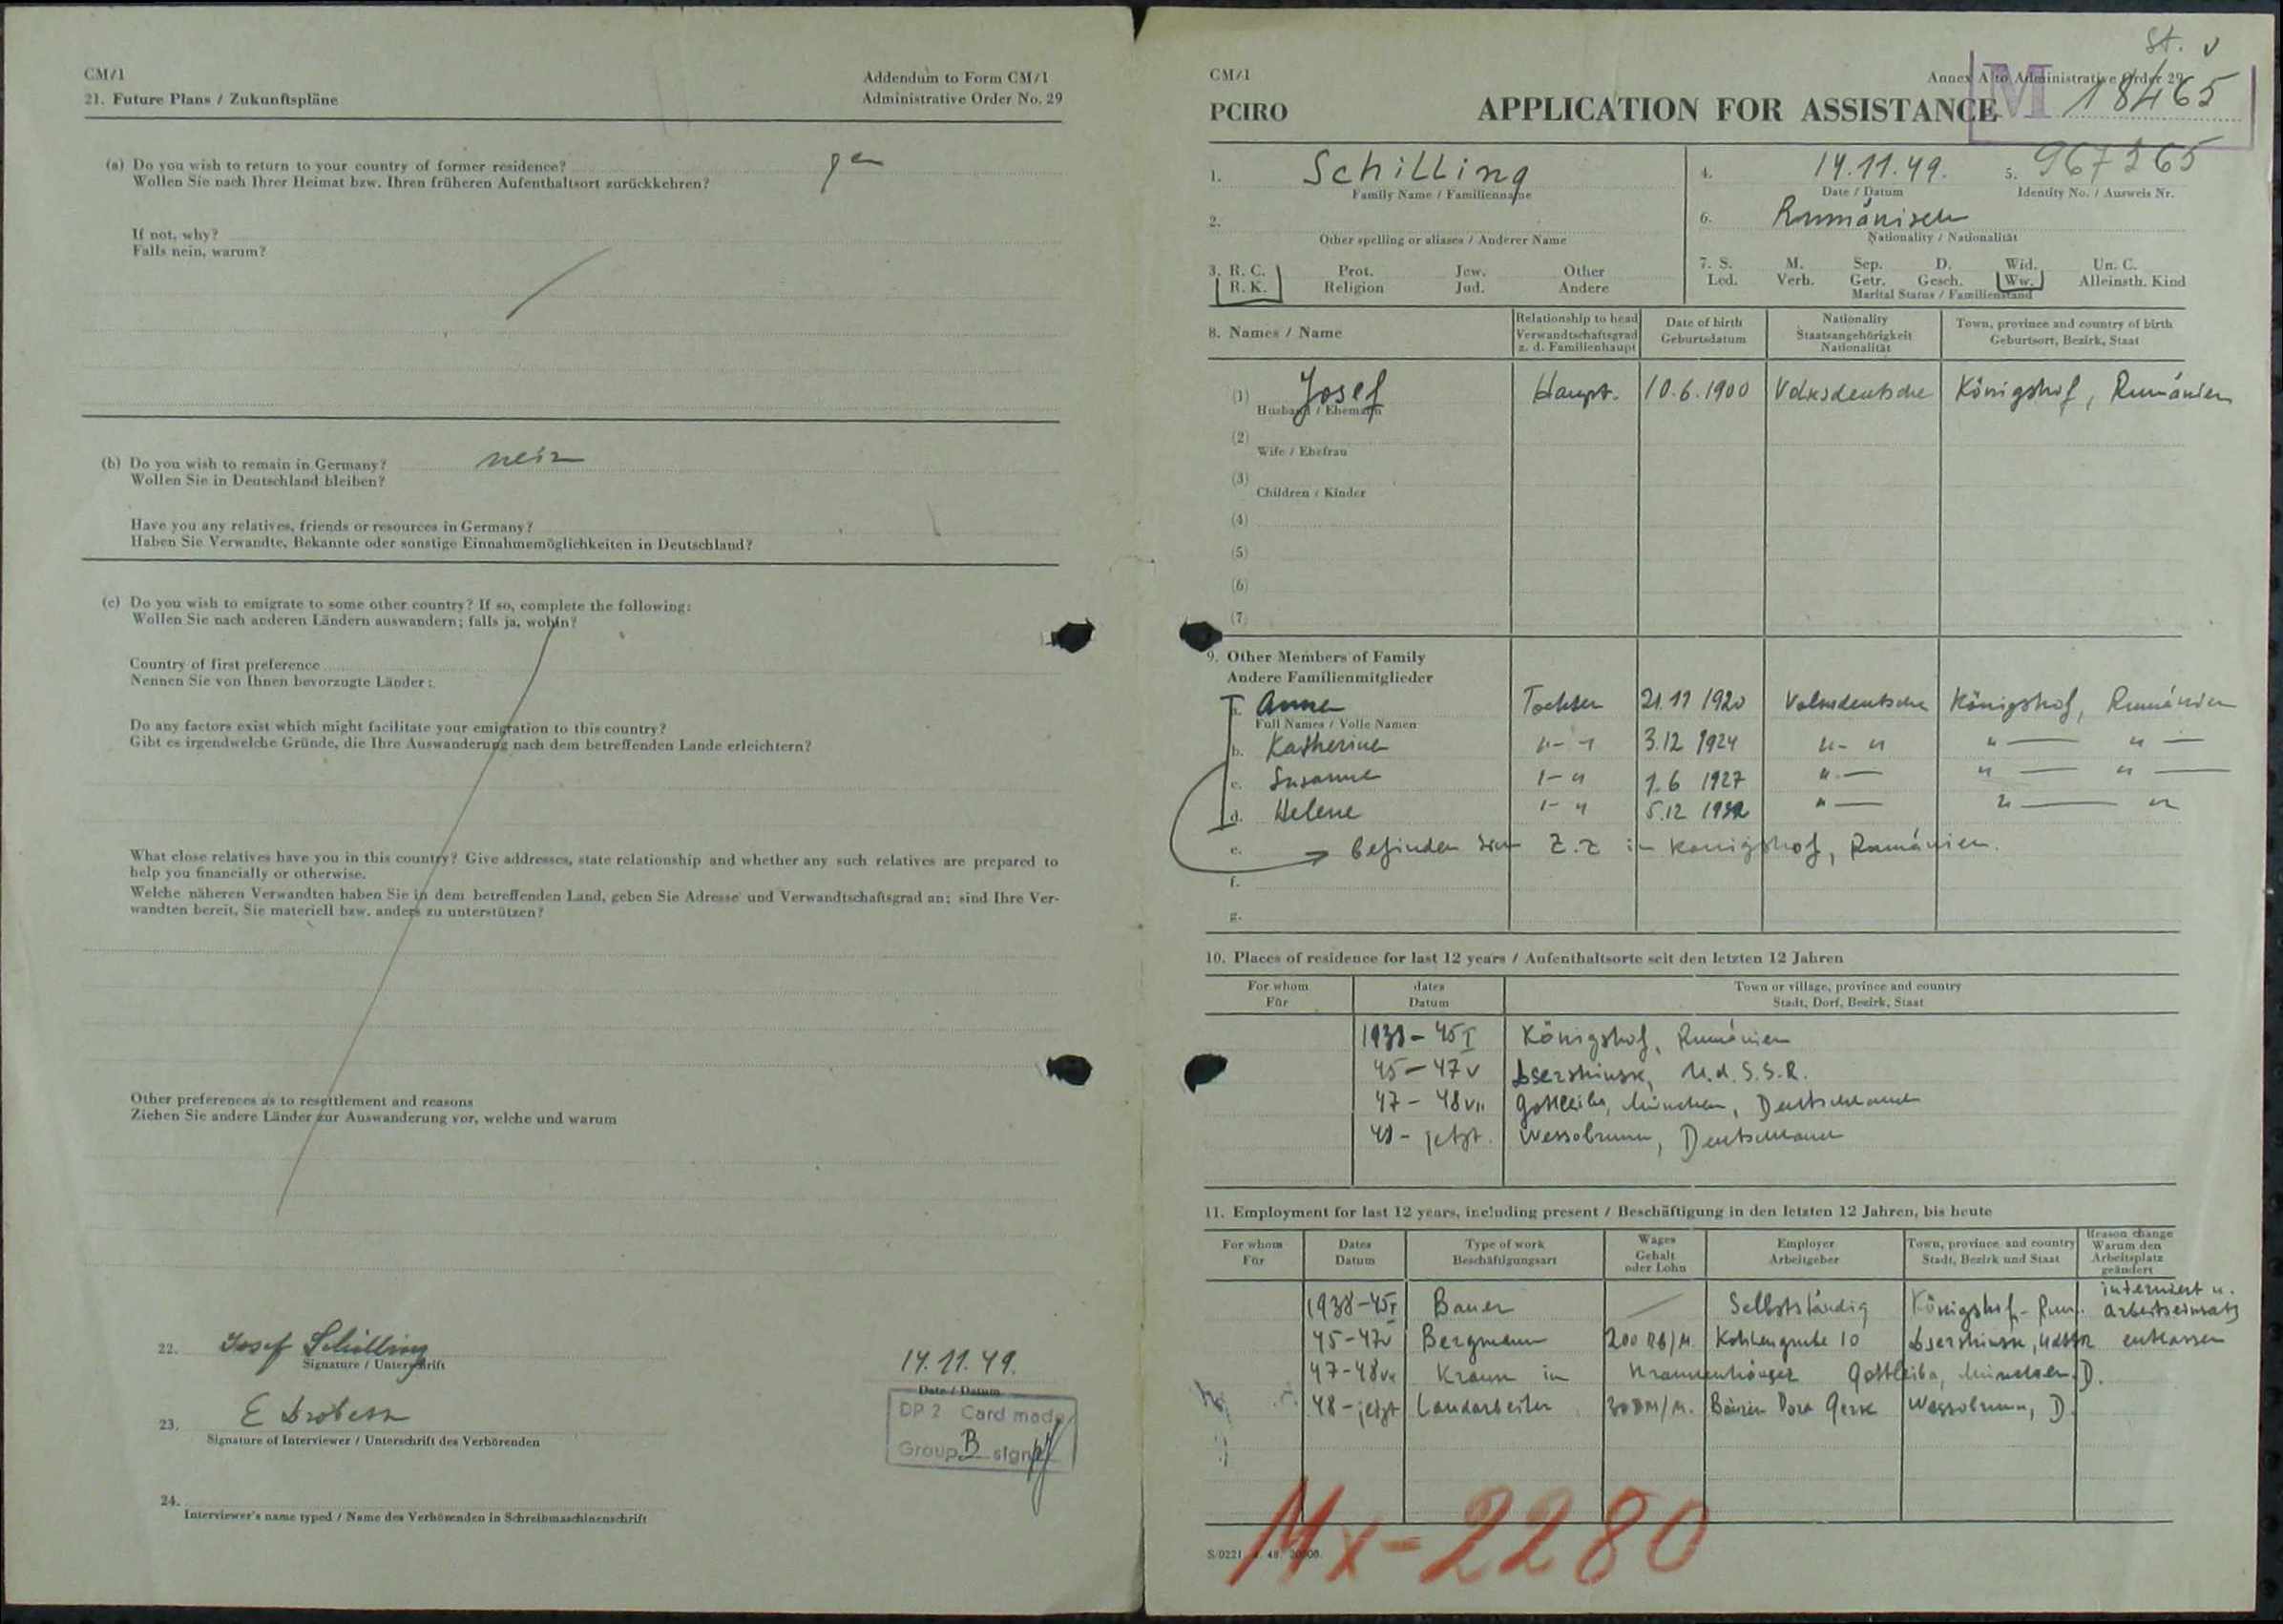 CM/1
Addendum to Form CM/1
21. Future Plans / Zukunftspläne
Administrative Order No. 29
(a) Do you wish to return to your country of former residence? ja
Wollen Sie nach Ihrer Heimat bzw. Ihren früheren Aufenthaltsort zurückkehren?
If not, why?
Falls nein, warum?
(b) Do you wish to remain in Germany? nein
Wollen Sie in Deutschland bleiben?
Have you any relatives, friends or resources in Germany?
Haben Sie Verwandte, Bekannte oder sonstige Einnahmemöglichkeiten in Deutschland?
(c) Do you wish to emigrate to some other country? If so, complete the following:
Wollen Sie nach anderen Ländern auswandern; falls ja, wohin?
Country of first preference
Nennen Sie von Ihnen bevorzugte Länder:
Do any factors exist which might facilitate your emigration to this country?
Gibt es irgendwelche Gründe, die Ihre Auswanderung nach dem betreffenden Lande erleichtern?
What close relatives have you in this country? Give addresses, state relationship and whether any such relatives are prepared to
help you financially or otherwise.
Welche näheren Verwandten haben Sie in dem betreffenden Land, geben Sie Adresse und Verwandtschaftsgrad an; sind Ihre Ver-
wandten bereit, Sie materiell bzw. anders zu unterstützen?
Other preferences as to resettlement and reasons
Ziehen Sie andere Länder zur Auswanderung vor, welche und warum
22. Josef Schilling
Signature / Unterschrift
14.11.49.
Date / Datum
23.
Signature of Interviewer / Unterschrift des Verhörenden
DP 2 Card made
Group B sign
24.
Interviewer's name typed / Name des Verhörenden in Schreibmaschinenschrift
St. v
CM/1
Annex A to Administrative Order 29
PCIRO
APPLICATION FOR ASSISTANCE
M 18465
1. Schilling
Family Name / Familienname
4. 14.11.49.
Date / Datum
5. 967265
Identity No. / Ausweis Nr.
2.
Other spelling or aliases / Anderer Name
6. Rumänisch
Nationality / Nationalität
3. R. C. Prot. Jew. Other
R. K. Religion Jud. Andere
7. S. M. Sep. D. Wid. Un. C.
Led. Verh. Getr. Gesch. Ww. Alleinsth. Kind
Marital Status / Familienstand
8. Names / Name
Relationship to head
Verwandtschaftsgrad
z. d. Familienhaupt
Date of birth
Geburtsdatum
Nationality
Staatsangehörigkeit
Nationalität
Town, province and country of birth
Geburtsort, Bezirk, Staat
(1) Josef Haupt. 10.6.1900 Volksdeutsche Königshof, Rumänien
Husband / Ehemann
(2)
Wife / Ehefrau
(3)
Children / Kinder
(4)
(5)
(6)
(7)
9. Other Members of Family
Andere Familienmitglieder
a. Anna Tochter 21.11 1920 Volksdeutsche Königshof, Rumänien
Full Names / Volle Namen
b. Katherina "-" 3.12 1924 "-" "— "—
c. Susanna "-" 1.6 1927 "— "— "—
d. Helene "-" 5.12 1932 "— "— "
e. Befinden sich z.z in Königshof, Rumänien.
f.
g.
10. Places of residence for last 12 years / Aufenthaltsorte seit den letzten 12 Jahren
For whom
Für
dates
Datum
Town or village, province and country
Stadt, Dorf, Bezirk, Staat
1938 - 45 I Königshof, Rumänien
45 - 47 V Dserschinsk, U.d.S.S.R.
47 - 48 VII Gottleiba, München, Deutschland
48 - jetzt. Wessobrunn, Deutschland
11. Employment for last 12 years, including present / Beschäftigung in den letzten 12 Jahren, bis heute
For whom
Für
Dates
Datum
Type of work
Beschäftigungsart
Wages
Gehalt
oder Lohn
Employer
Arbeitgeber
Town, province and country
Stadt, Bezirk und Staat
Reason change
Warum den
Arbeitsplatz
geändert
1938-45 I Bauer — Selbstständig Königshof - Rum. interniert u. arbeitseinsatz
45-47 V Bergmann 200 RB/M Kohlengrube 10 Dserschinsk, UdSSR entlassen
47-48 VII Krank im Krankenhäuser Gottleiba, München, D.
48 - jetzt Landarbeiter 30 DM/M. Dora Wessobrunn, D.
S/0221 4. 48. 20000.
Mx-2280